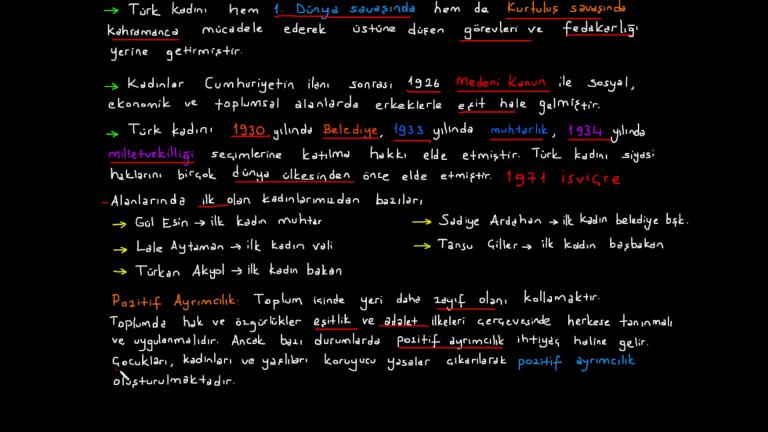 → Türk kadını hem 1. Dünya savaşında hem de Kurtuluş savaşında
kahramanca mücadele ederek üstüne düşen görevleri ve fedakarlığı
yerine getirmiştir.
→ Kadınlar Cumhuriyetin ilanı sonrası 1926 Medeni Kanun ile sosyal,
ekonomik ve toplumsal alanlarda erkeklerle eşit hale gelmiştir.
→ Türk kadını 1930 yılında Belediye, 1933 yılında muhtarlık, 1934 yılında
milletvekilliği seçimlerine katılma hakkı elde etmiştir. Türk kadını siyasi
haklarını birçok dünya ülkesinden önce elde etmiştir. 1971 isviçre
- Alanlarında ilk olan kadınlarımızdan bazıları
→ Gül Esin → ilk kadın muhtar
→ Lale Aytaman → ilk kadın vali
→ Türkan Akyol → ilk kadın bakan
→ Sadiye Ardahan → ilk kadın belediye bşk.
→ Tansu Çiller → ilk kadın başbakan
Pozitif Ayrımcılık: Toplum içinde yeri daha zayıf olanı kollamaktır.
Toplumda hak ve özgürlükler eşitlik ve adalet ilkeleri çerçevesinde herkese tanınmalı
ve uygulanmalıdır. Ancak bazı durumlarda pozitif ayrımcılık ihtiyaç haline gelir.
Çocukları, kadınları ve yaşlıları koruyucu yasalar çıkarılarak pozitif ayrımcılık
oluşturulmaktadır.